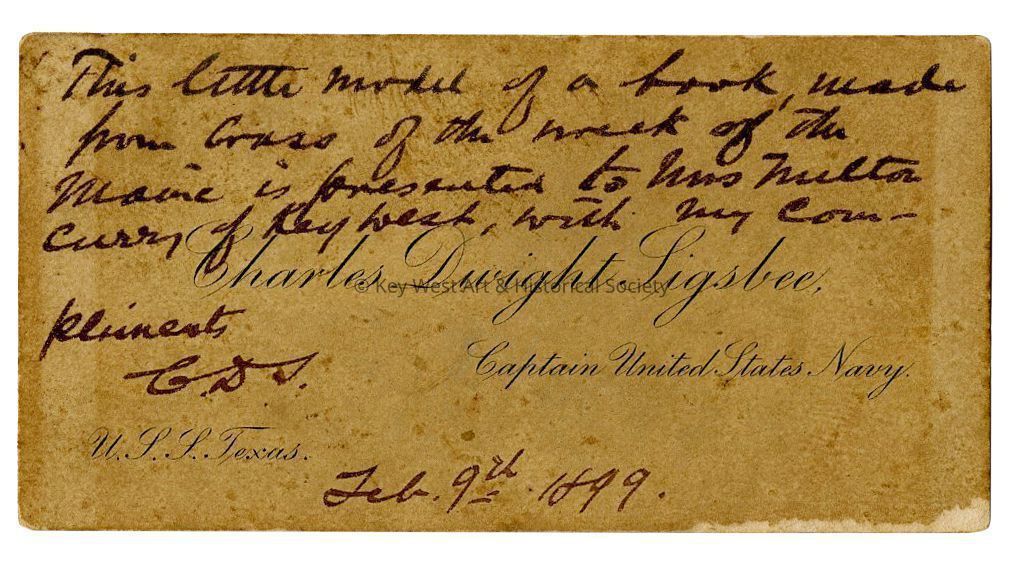 This little model of a book, made
from brass of the wreck of the
Maine is presented to Mrs Milton
Curry of Key West, with my com-
Charles Dwight Sigsbee,
© Key West Art & Historical Society
pliments
Captain United States Navy.
C.D.S.
U.S.S. Texas.
Feb. 9th 1899.